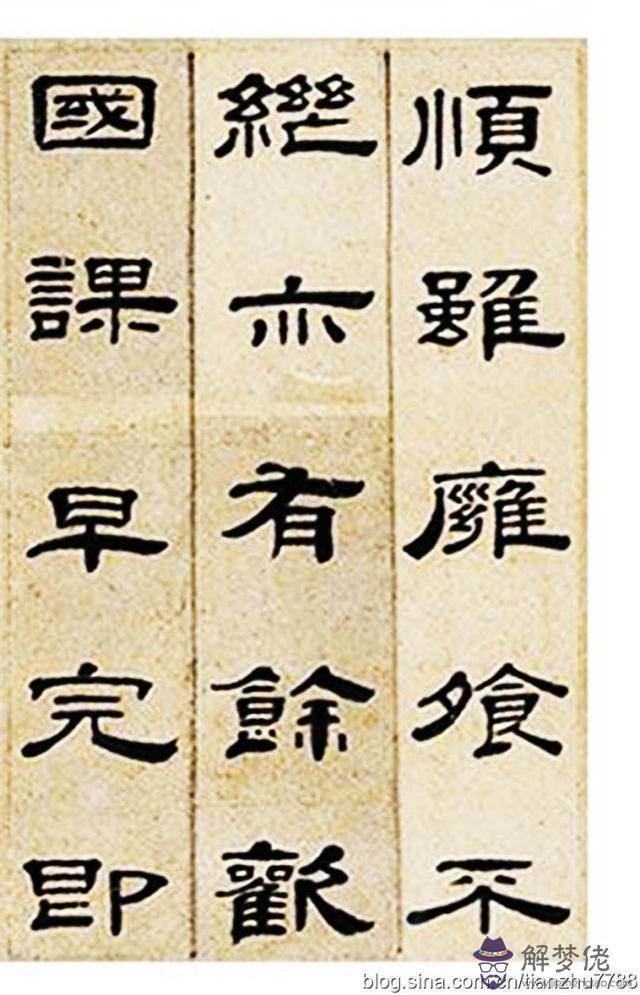 順雖廱飧不
繼亦有餘歡
國課早完即
解梦佬
blog.sina.com.cn/tianzhu7788